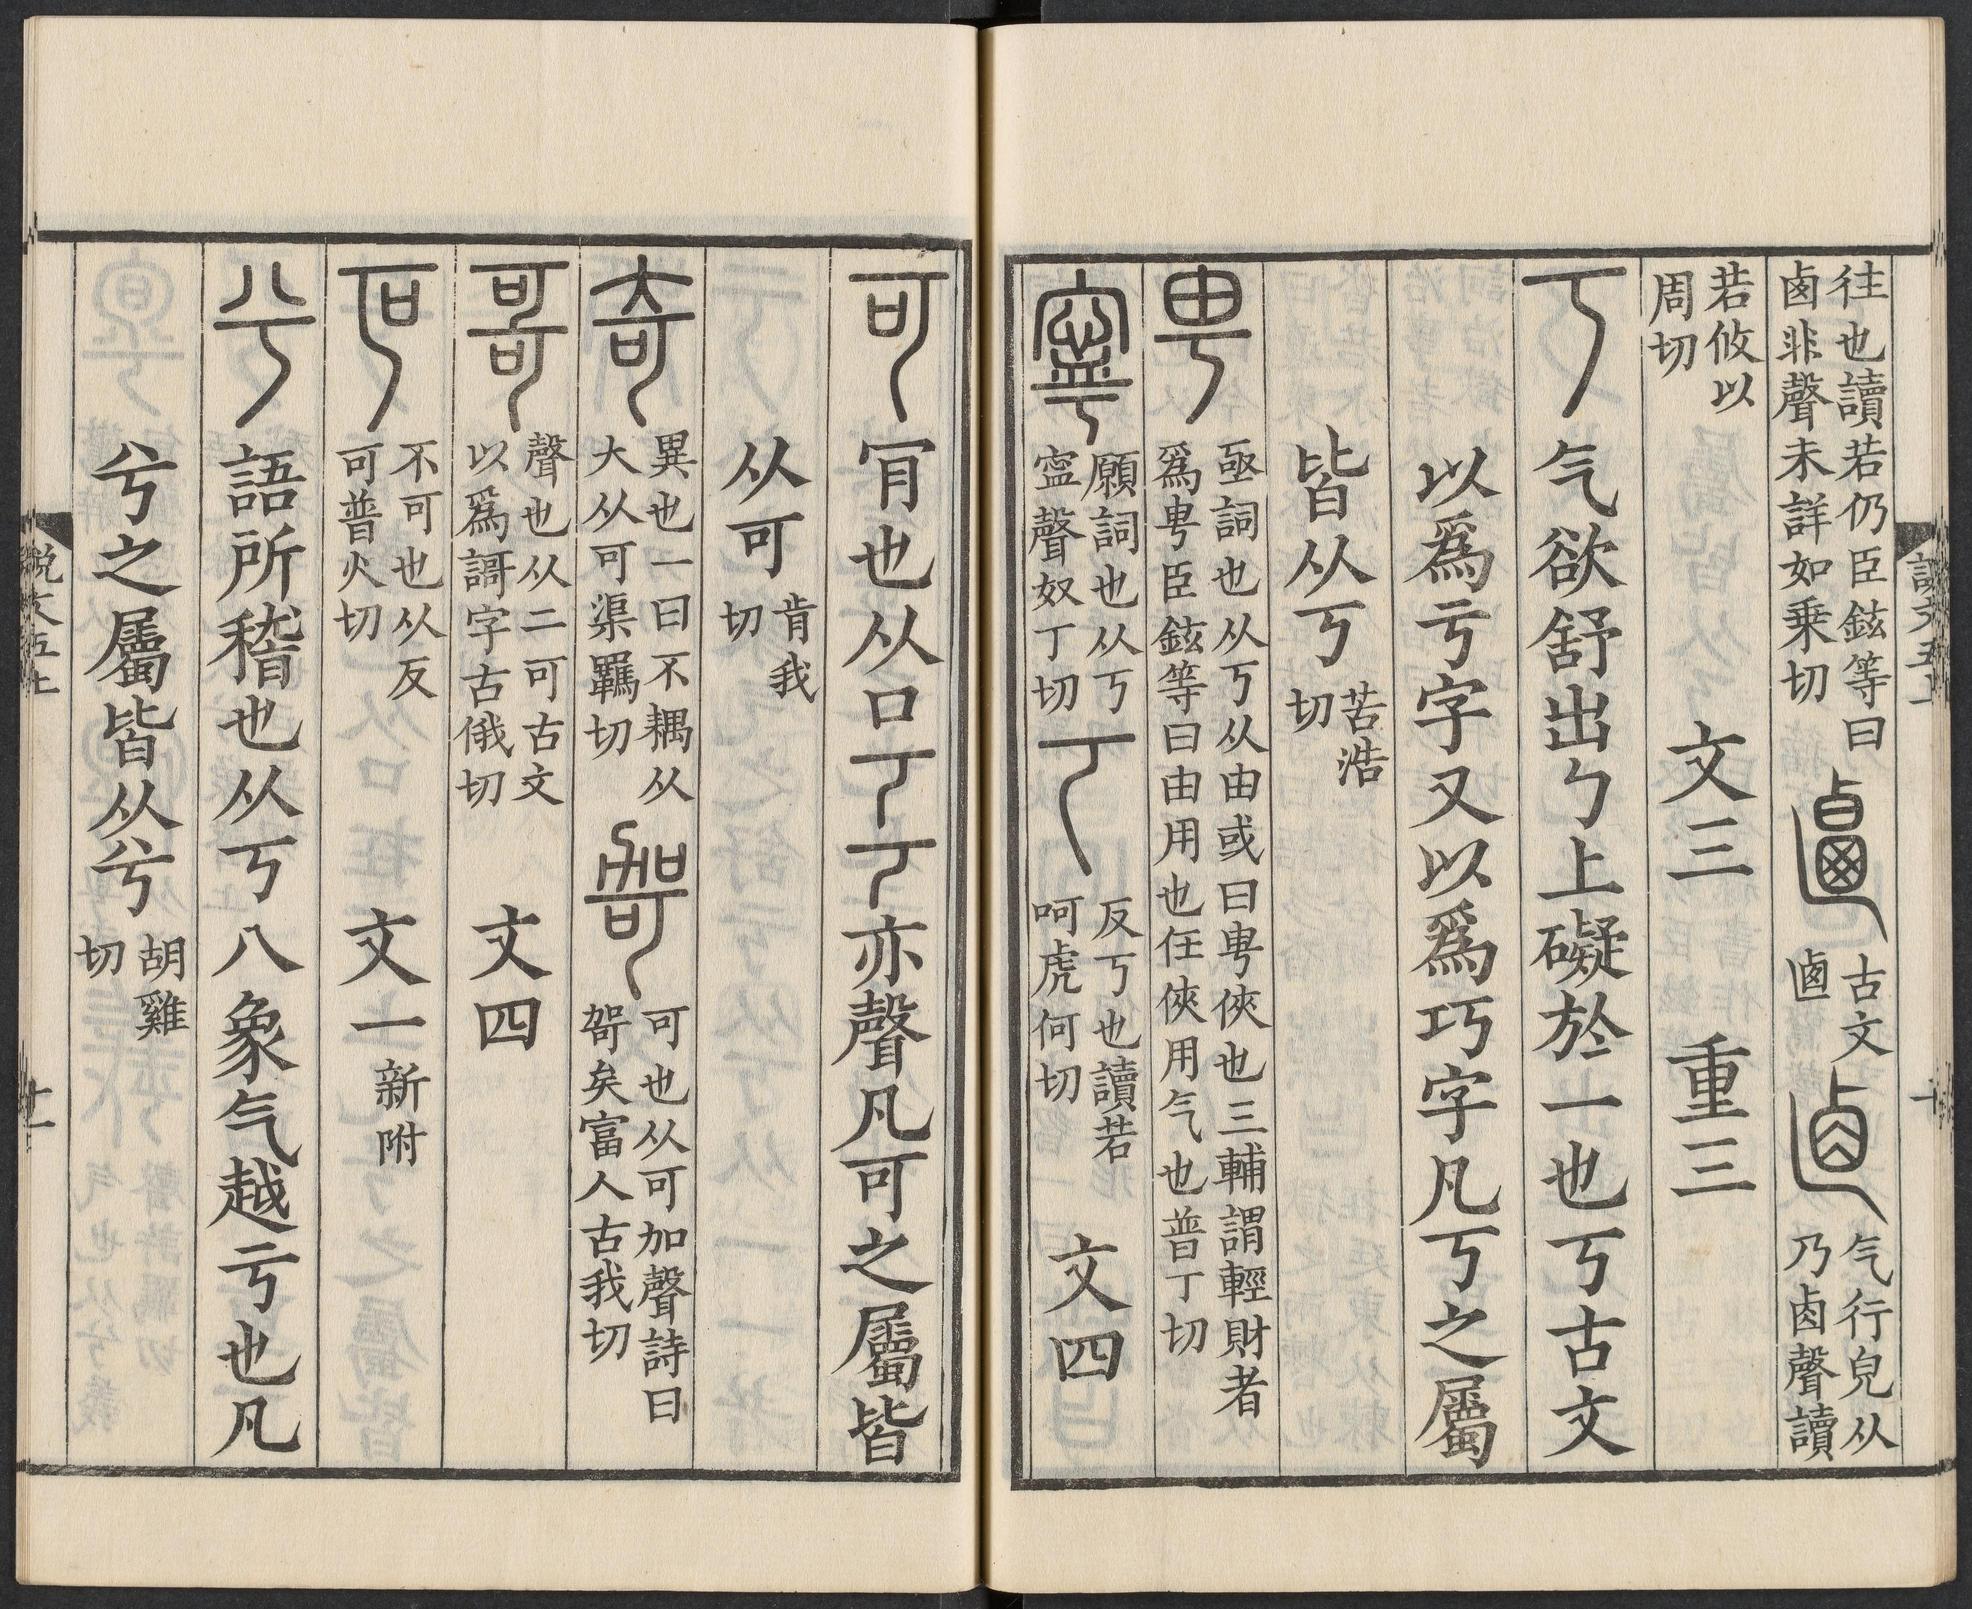 往也讀若仍臣鉉等曰
鹵非聲未詳如乘切
古文
气行皃从
乃卤聲讀
若攸以
周切
文三 重三
丂 气欲舒出勹上礙於一也丂古文
以為亏字又以為巧字凡丂之屬
皆从丂 苦浩
切
甹 亟詞也从丂从由或曰甹俠也三輔謂輕財者
為甹臣鉉等曰由用也任俠用气也普丁切
寧 願詞也从丂
寍聲奴丁切
反丂也讀若
呵虎何切
文四
可 肎也从口丂丂亦聲凡可之屬皆
从可 肯我
切
奇 異也一曰不耦从
大从可渠羈切
哿 可也从可加聲詩曰
哿矣富人古我切
哥 聲也从二可古文
以為謌字古俄切
文四
叵 不可也从反
可普火切
文一 新附
兮 語所稽也从丂八象气越亏也凡
兮之屬皆从兮 胡雞
切
說文五上
十一